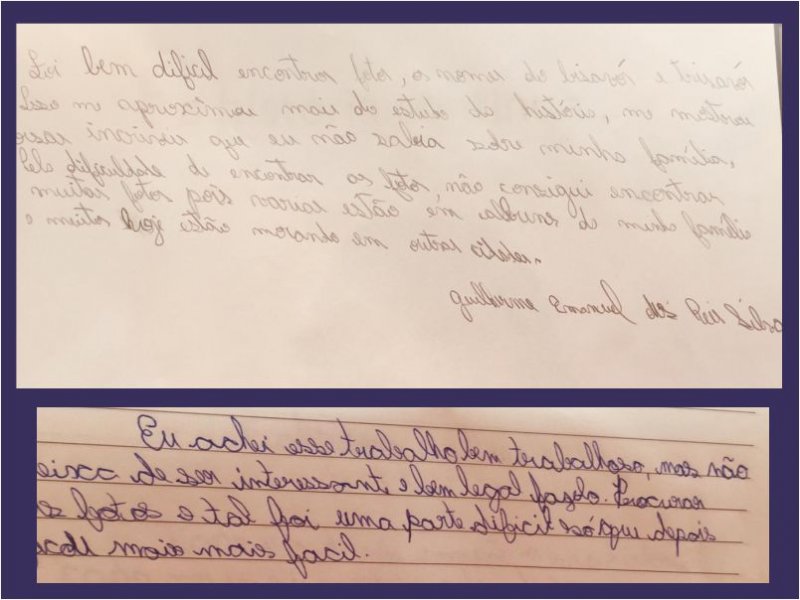 Foi bem dificil encontrar fotos, os nomes do bisavós e trisavós
Isso me aproximou mais do estudo da história, me mostrou
coisas incriveis que eu não sabia sobre minha família,
Pela dificuldade de encontrar as fotos, não consigui encontrar
muitas fotos pois varias estão em albuns de minha familia
e muitos hoje estão morando em outras cidades.
Guilherme Emanuel dos Reis Silva
Eu achei esse trabalho bem trabalhoso, mas não
eixa de ser interessante e bem legal fazelo. Procurar
as fotos e tal foi uma parte dificil só que depois
icou mais facil.